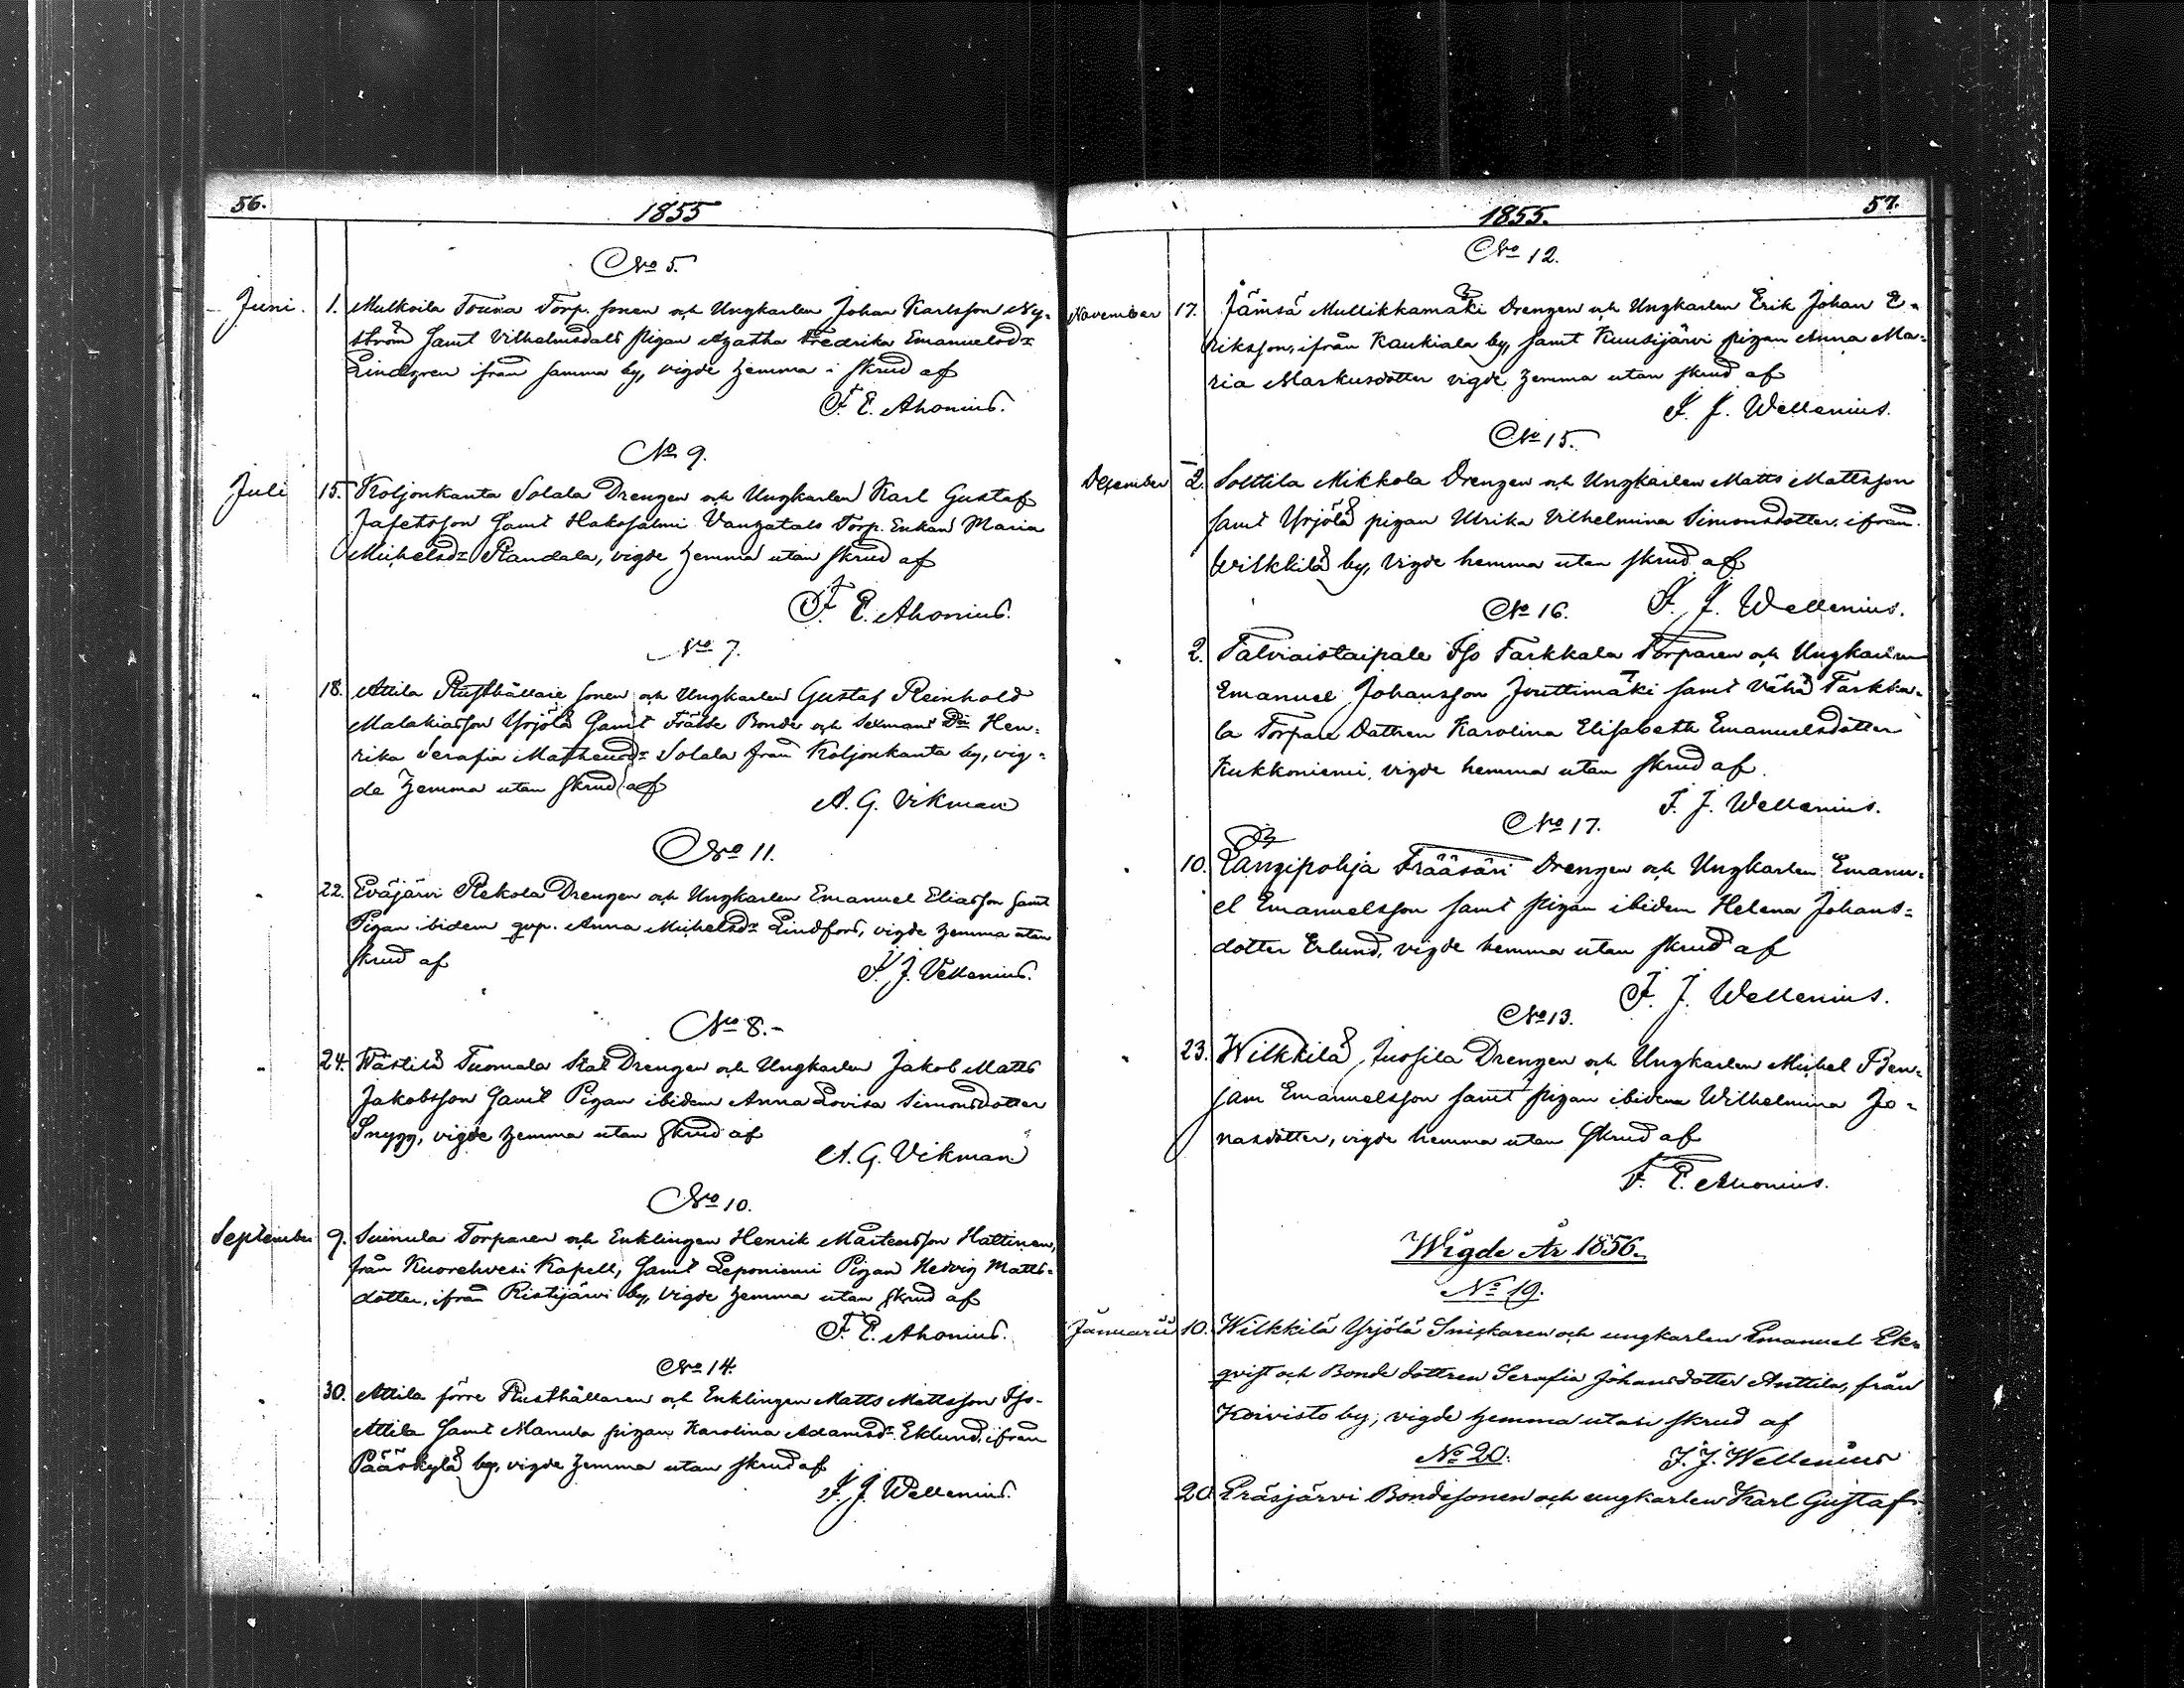 56.
1855
No 5.
Juni. 1. Mulkoila Touna Torp. sonen och Ungkarlen Johan Karlsson Ny-
ström samt Vilhelmsdals pigan Agatha Fredrika Emanuelsdr
Lindgren ifrån samma by, vigde hemma i skrud af
F. E. Ahonius.
No 9.
Juli 15. Koljonkanta Solala Drengen och Ungkarlen Karl Gustaf
Jafetsson samt Haksalmi Torp. Enkan Maria
Michelsdr Randala, vigde hemma utan skrud af
F. E. Ahonius.
No 7.
" 18. Attila Rusthållare sonen och Ungkarlen Gustaf Reinhold
Malakiasson Yrjölä samt Frälse Bonde och Sexmans Dr Hen-
rika Serafia Matheusdr Solala från Koljonkanta by, vig-
de hemma utan skrud af
A. G. Vikman
No 11.
" 22. Eväjärvi Rekola Drengen och Ungkarlen Emanuel Eliasson samt
Pigan ibidem qvp. Anna Michelsdr Lindfors, vigde hemma utan
skrud af
F. J. Vellenius.
No 8.-
" 24. Västilä Tuomala Stat Drengen och Ungkarlen Jakob Matts
Jakobsson samt Pigan ibidem Anna Lovisa Simonsdotter
Snygg, vigde hemma utan skrud af
A. G. Vikman
No 10.
September 9. Suinula Torparen och Enklingen Henrik Mårtensson Hattinen,
från Kuorehvesi Kapell, samt Leponiemi Pigan Hedvig Matts-
dotter, ifrån Ristijärvi by, vigde hemma utan skrud af
F. E. Ahonius.
No 14.
" 30. Attila förre Rusthållaren och Enklingen Matts Mattsson Iso-
Attila samt Manula pigan Karolina Adamsdr Eklund, ifrån
Pääskylä by, vigde hemma utan skrud af
F. J. Wellenius.
1855.
57.
No 12.
November 17. Jämsä Mullikkamäki Drengen och Ungkarlen Erik Johan E-
riksson, ifrån Kaukiala by, samt Kuusijärvi pigan Anna Ma-
ria Markusdotter vigde hemma utan skrud af
F. J. Wellenius.
No 15.
December 2. Solttila Mikkola Drengen och Ungkarlen Matts Mattsson
samt Yrjölä pigan Ulrika Vilhelmina Simonsdotter, ifrån
Wilkkilä by, vigde hemma utan skrud af
F. J. Wellenius.
No 16.
" 2. Talviaistaipale Iso Tarkkala Torparen och Ungkarlen
Emanuel Johansson Jouttimäki samt Vähä Tarkka-
la Torpare Dottren Karolina Elisabeth Emanuelsdotter
Kukkoniemi, vigde hemma utan skrud af
F. J. Wellenius.
No 17.
" 10. Längipohja Frääsäri Drengen och Ungkarlen Emanu-
el Emanuelsson samt pigan ibidem Helena Johans-
dotter Erlund, vigde hemma utan skrud af
F. J. Wellenius.
No 13.
" 23. Wilkkilä Jussila Drengen och Ungkarlen Michel Ben-
jam Emanuelsson samt pigan ibidem Wilhelmina Jo-
nasdotter, vigde hemma utan skrud af
F. E. Ahonius.
Wigde År 1856.
No 19.
Januarii 10. Wilkkilä Yrjölä Snickaren och ungkarlen Emanuel Ek-
qvist och Bonde dottren Serafia Johansdotter Anttila, från
Koivisto by, vigde hemma utan skrud af
F. J. Wellenius
No 20.
20. Eräsjärvi Bondesonen och ungkarlen Karl Gustaf